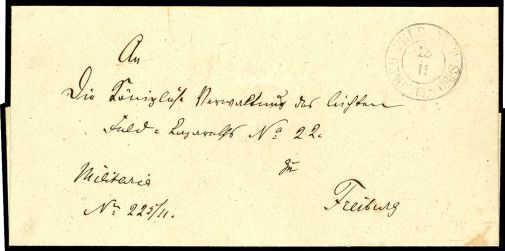 An
Die Königliche Verwaltung des leichten
Feld-Lazareths No 22.
zu
Militaria
Freiburg
No 225/11.
23
11